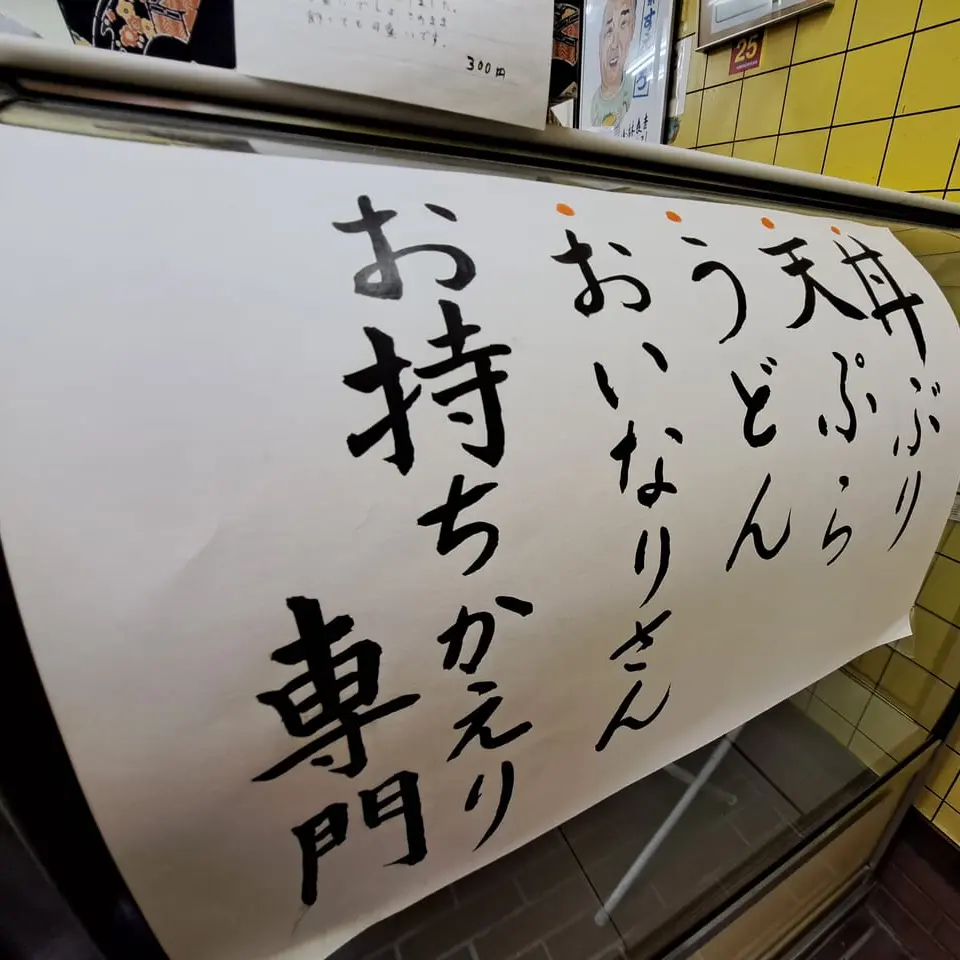 300円
25
丼ぶり
天ぷら
うどん
おいなりさん
お持ちかえり
専門